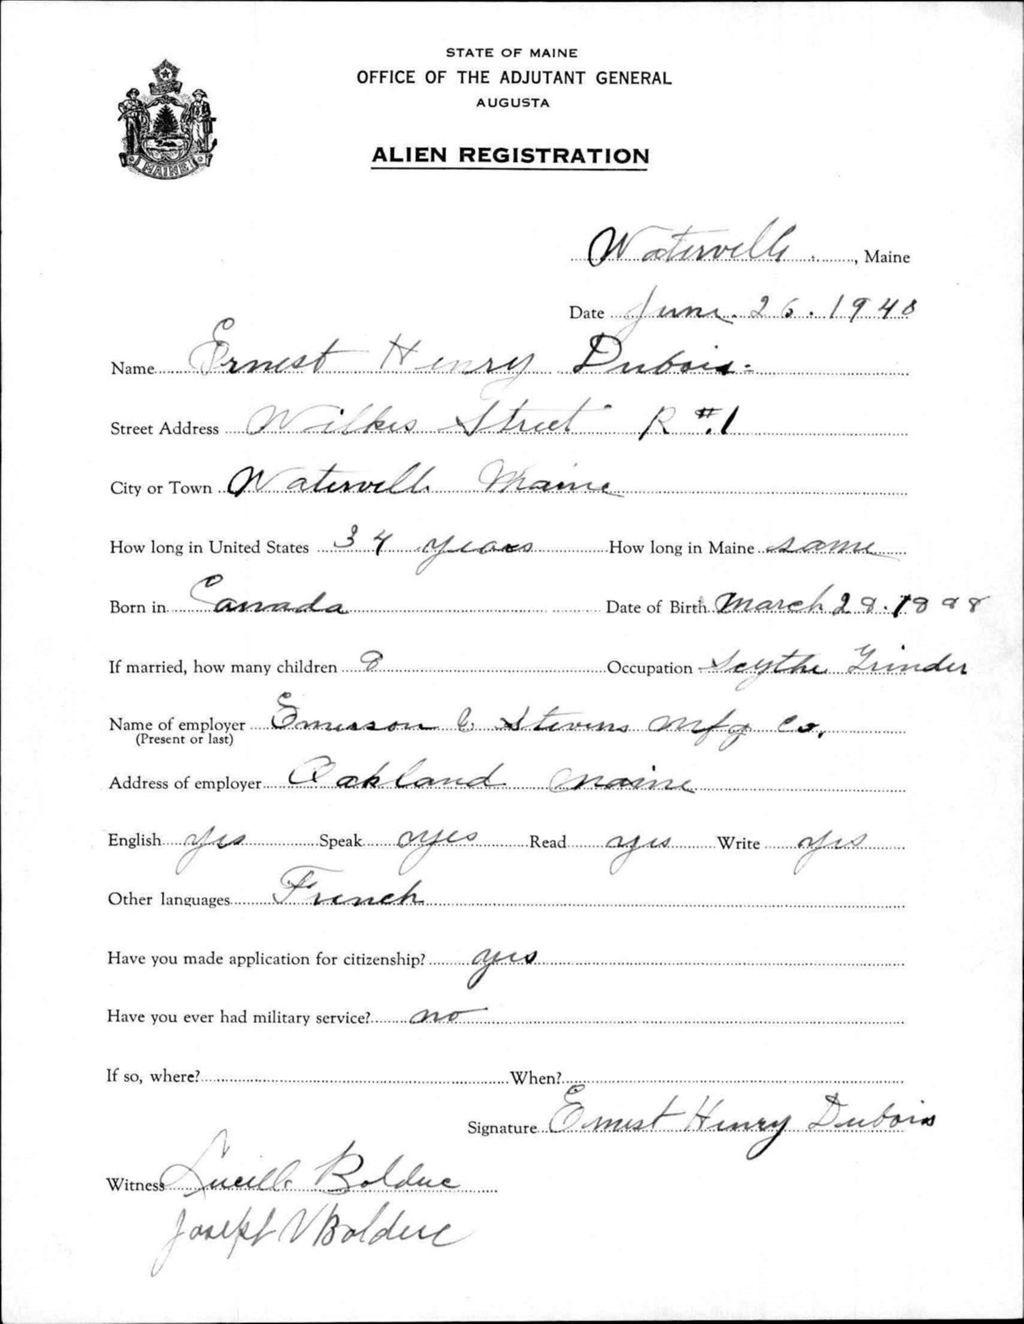 STATE OF MAINE
OFFICE OF THE ADJUTANT GENERAL
AUGUSTA
ALIEN REGISTRATION
MAINE
Waterville, Maine
Date June 26. 1940
Name Ernest Henry Dubois
Street Address Wilkes Street R #1
City or Town Waterville Maine
How long in United States 34 years How long in Maine same
Born in Canada Date of Birth March 28. 1898
If married, how many children 8 Occupation Scythe Grinder
Name of employer Emerson & Stevens Mfg Co.
(Present or last)
Address of employer Oakland Maine
English yes Speak yes Read yes Write yes
Other languages French
Have you made application for citizenship? yes
Have you ever had military service? no
If so, where? When?
Signature Ernest Henry Dubois
Witness Lucille Bolduc
Joseph V Bolduc